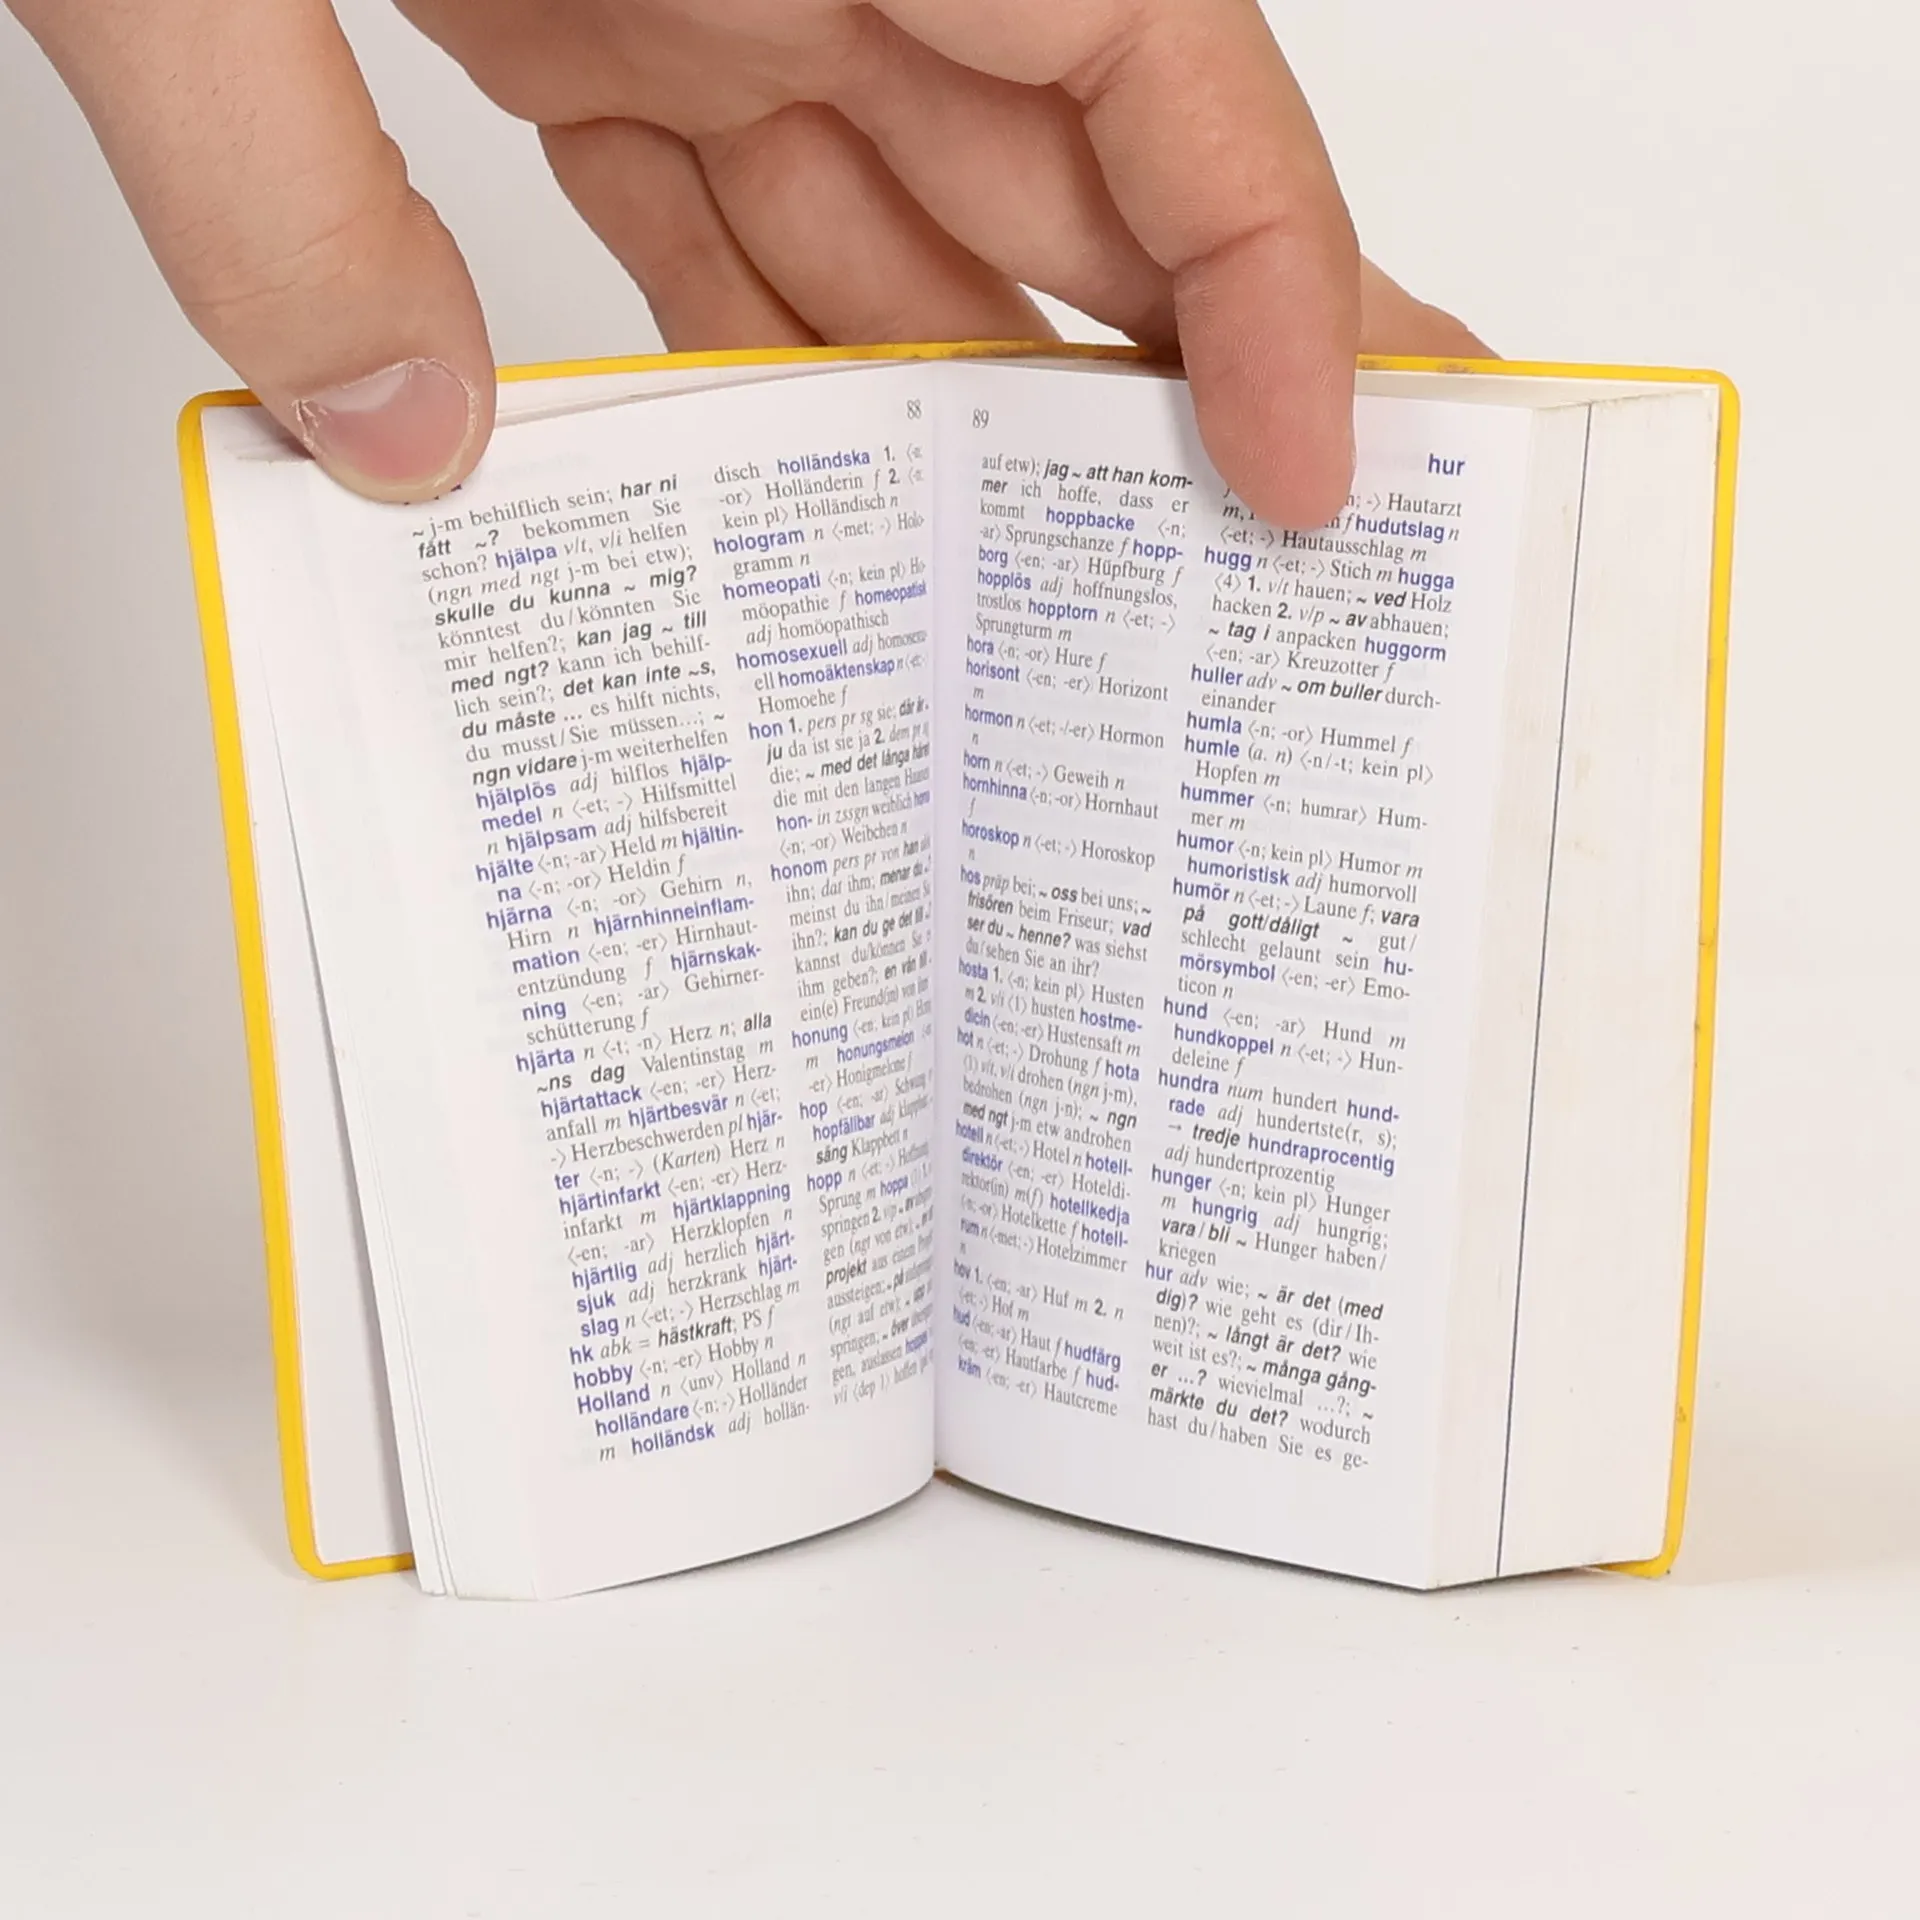 88
~ j-m behilflich sein; har ni
fått ~? bekommen Sie
schon? hjälpa v/t, v/i helfen
(ngn med ngt j-m bei etw);
skulle du kunna ~ mig?
könntest du/könnten Sie
mir helfen?; kan jag ~ till
med ngt? kann ich behilf-
lich sein?; det kan inte ~s,
du måste ... es hilft nichts,
du musst/Sie müssen...; ~
ngn vidare j-m weiterhelfen
hjälplös adj hilflos hjälp-
medel n ⟨-et; -⟩ Hilfsmittel
n hjälpsam adj hilfsbereit
hjälte ⟨-n; -ar⟩ Held m hjältin-
na ⟨-n; -or⟩ Heldin f
hjärna ⟨-n; -or⟩ Gehirn n,
Hirn n hjärnhinneinflam-
mation ⟨-en; -er⟩ Hirnhaut-
entzündung f hjärnskak-
ning ⟨-en; -ar⟩ Gehirner-
schütterung f
hjärta n ⟨-t; -n⟩ Herz n; alla
~ns dag Valentinstag m
hjärtattack ⟨-en; -er⟩ Herz-
anfall m hjärtbesvär n ⟨-et;
-⟩ Herzbeschwerden pl hjär-
ter ⟨-n; -⟩ (Karten) Herz n
hjärtinfarkt ⟨-en; -er⟩ Herz-
infarkt m hjärtklappning
⟨-en; -ar⟩ Herzklopfen n
hjärtlig adj herzlich hjärt-
sjuk adj herzkrank hjärt-
slag n ⟨-et; -⟩ Herzschlag m
hk abk = hästkraft; PS f
hobby ⟨-n; -er⟩ Hobby n
Holland n ⟨unv⟩ Holland n
holländare ⟨-n; -⟩ Holländer
m holländsk adj hollän-
disch holländska 1. ⟨-n;
-or⟩ Holländerin f 2. ⟨-n;
kein pl⟩ Holländisch n
hologram n ⟨-met; -⟩ Holo-
gramm n
homeopati ⟨-n; kein pl⟩ Ho-
möopathie f homeopatisk
adj homöopathisch
homosexuell adj homosexu-
ell homoäktenskap n ⟨-et; -⟩
Homoehe f
hon 1. pers pr sg sie; där är
ju da ist sie ja 2. dem pr sg
die; ~ med det långa håret
die mit den langen Haaren
hon- in zssgn weiblich hona
⟨-n; -or⟩ Weibchen n
honom pers pr von han
ihn; dat ihm; menar du ~?
meinst du ihn/meinen Sie
ihn?; kan du ge det till ~?
kannst du/können Sie
ihm geben?; en vän till ~
ein(e) Freund(in) von ihm
honung ⟨-en; kein pl⟩ Honig
m honungsmelon
-er⟩ Honigmelone f
hop ⟨-en; -ar⟩ Schwung
hopfällbar adj
säng Klappbett n
hopp n ⟨-et; -⟩ Hoffnung
Sprung m hoppa ⟨1⟩
springen 2. v/p ~ av
gen (ngt von etw);
projekt aus einem
aussteigen; ~ på
(ngt auf etw); ~ upp
springen; ~ över
gen, auslassen
v/i ⟨dep 1⟩ hoffen
89
hur
auf etw); jag ~ att han kom-
mer ich hoffe, dass er
kommt hoppbacke ⟨-n;
-ar⟩ Sprungschanze f hopp-
borg ⟨-en; -ar⟩ Hüpfburg f
hopplös adj hoffnungslos,
trostlos hopptorn n ⟨-et; -⟩
Sprungturm m
hora ⟨-n; -or⟩ Hure f
horisont ⟨-en; -er⟩ Horizont
m
hormon n ⟨-et; -/-er⟩ Hormon
n
horn n ⟨-et; -⟩ Geweih n
hornhinna ⟨-n; -or⟩ Hornhaut
f
horoskop n ⟨-et; -⟩ Horoskop
n
hos präp bei; ~ oss bei uns; ~
frisören beim Friseur; vad
ser du ~ henne? was siehst
du/sehen Sie an ihr?
hosta 1. ⟨-n; kein pl⟩ Husten
m 2. v/i ⟨1⟩ husten hostme-
dicin ⟨-en; -er⟩ Hustensaft m
hot n ⟨-et; -⟩ Drohung f hota
⟨1⟩ v/t, v/i drohen (ngn j-m),
bedrohen (ngn j-n); ~ ngn
med ngt j-m etw androhen
hotell n ⟨-et; -⟩ Hotel n hotell-
direktör ⟨-en; -er⟩ Hoteldi-
rektor(in) m(f) hotellkedja
⟨-n; -or⟩ Hotelkette f hotell-
rum n ⟨-met; -⟩ Hotelzimmer
n
hov 1. ⟨-en; -ar⟩ Huf m 2. n
⟨-et; -⟩ Hof m
hud ⟨-en; -ar⟩ Haut f hudfärg
⟨-en; -er⟩ Hautfarbe f hud-
kräm ⟨-en; -er⟩ Hautcreme
-⟩ Hautarzt
f hudutslag n
⟨-et; -⟩ Hautausschlag m
hugg n ⟨-et; -⟩ Stich m hugga
⟨4⟩ 1. v/t hauen; ~ ved Holz
hacken 2. v/p ~ av abhauen;
~ tag i anpacken huggorm
⟨-en; -ar⟩ Kreuzotter f
huller adv ~ om buller durch-
einander
humla ⟨-n; -or⟩ Hummel f
humle (a. n) ⟨-n/-t; kein pl⟩
Hopfen m
hummer ⟨-n; humrar⟩ Hum-
mer m
humor ⟨-n; kein pl⟩ Humor m
humoristisk adj humorvoll
humör n ⟨-et; -⟩ Laune f; vara
på gott/dåligt ~ gut/
schlecht gelaunt sein hu-
mörsymbol ⟨-en; -er⟩ Emo-
ticon n
hund ⟨-en; -ar⟩ Hund m
hundkoppel n ⟨-et; -⟩ Hun-
deleine f
hundra num hundert hund-
rade adj hundertste(r, s);
→ tredje hundraprocentig
adj hundertprozentig
hunger ⟨-n; kein pl⟩ Hunger
m hungrig adj hungrig;
vara/bli ~ Hunger haben/
kriegen
hur adv wie; ~ är det (med
dig)? wie geht es (dir/Ih-
nen)?; ~ långt är det? wie
weit ist es?; ~ många gång-
er ...? wievielmal ...?; ~
märkte du det? wodurch
hast du/haben Sie es ge-